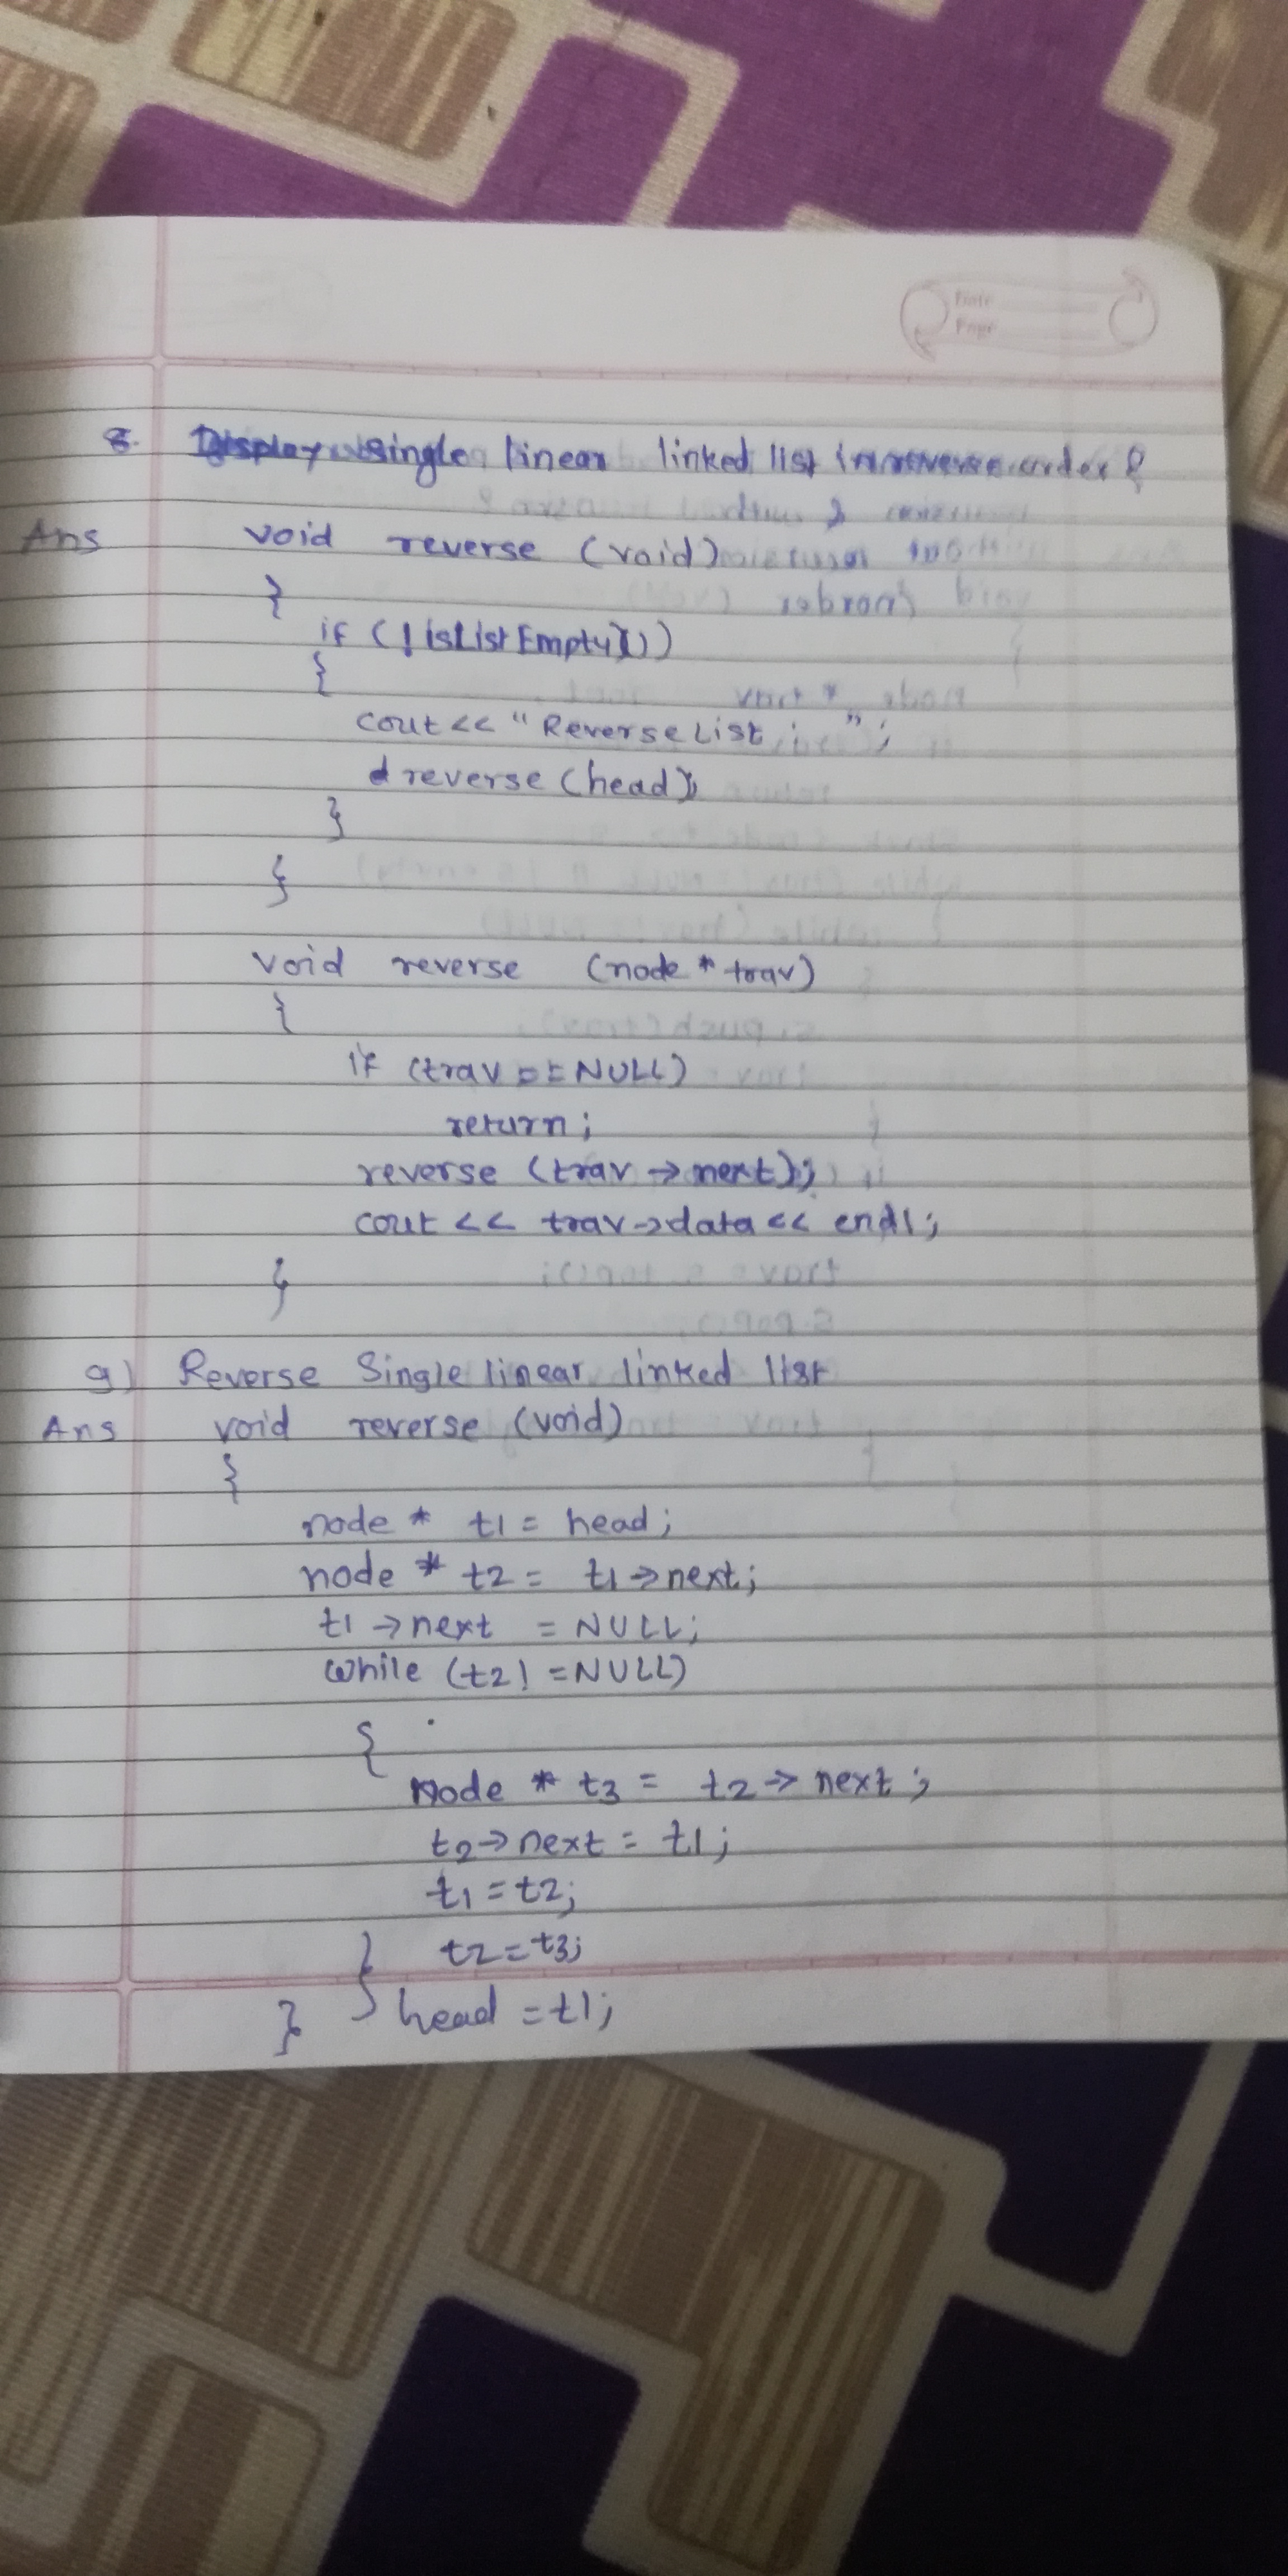 Date
Page
8. Display single linear linked list in reverse order ?
Ans void reverse (void)
{
if (! isListEmpty())
{
cout << "Reverse List : ";
reverse (head);
}
}
void reverse (node * trav)
{
if (trav == NULL)
return;
reverse (trav → next);
cout << trav → data << endl;
}
9) Reverse Single linear linked list
Ans void reverse (void)
{
node * t1 = head;
node * t2 = t1 → next;
t1 → next = NULL;
while (t2! = NULL)
{
Node * t3 = t2 → next;
t2 → next = t1;
t1 = t2;
} t2 = t3;
} head = t1;